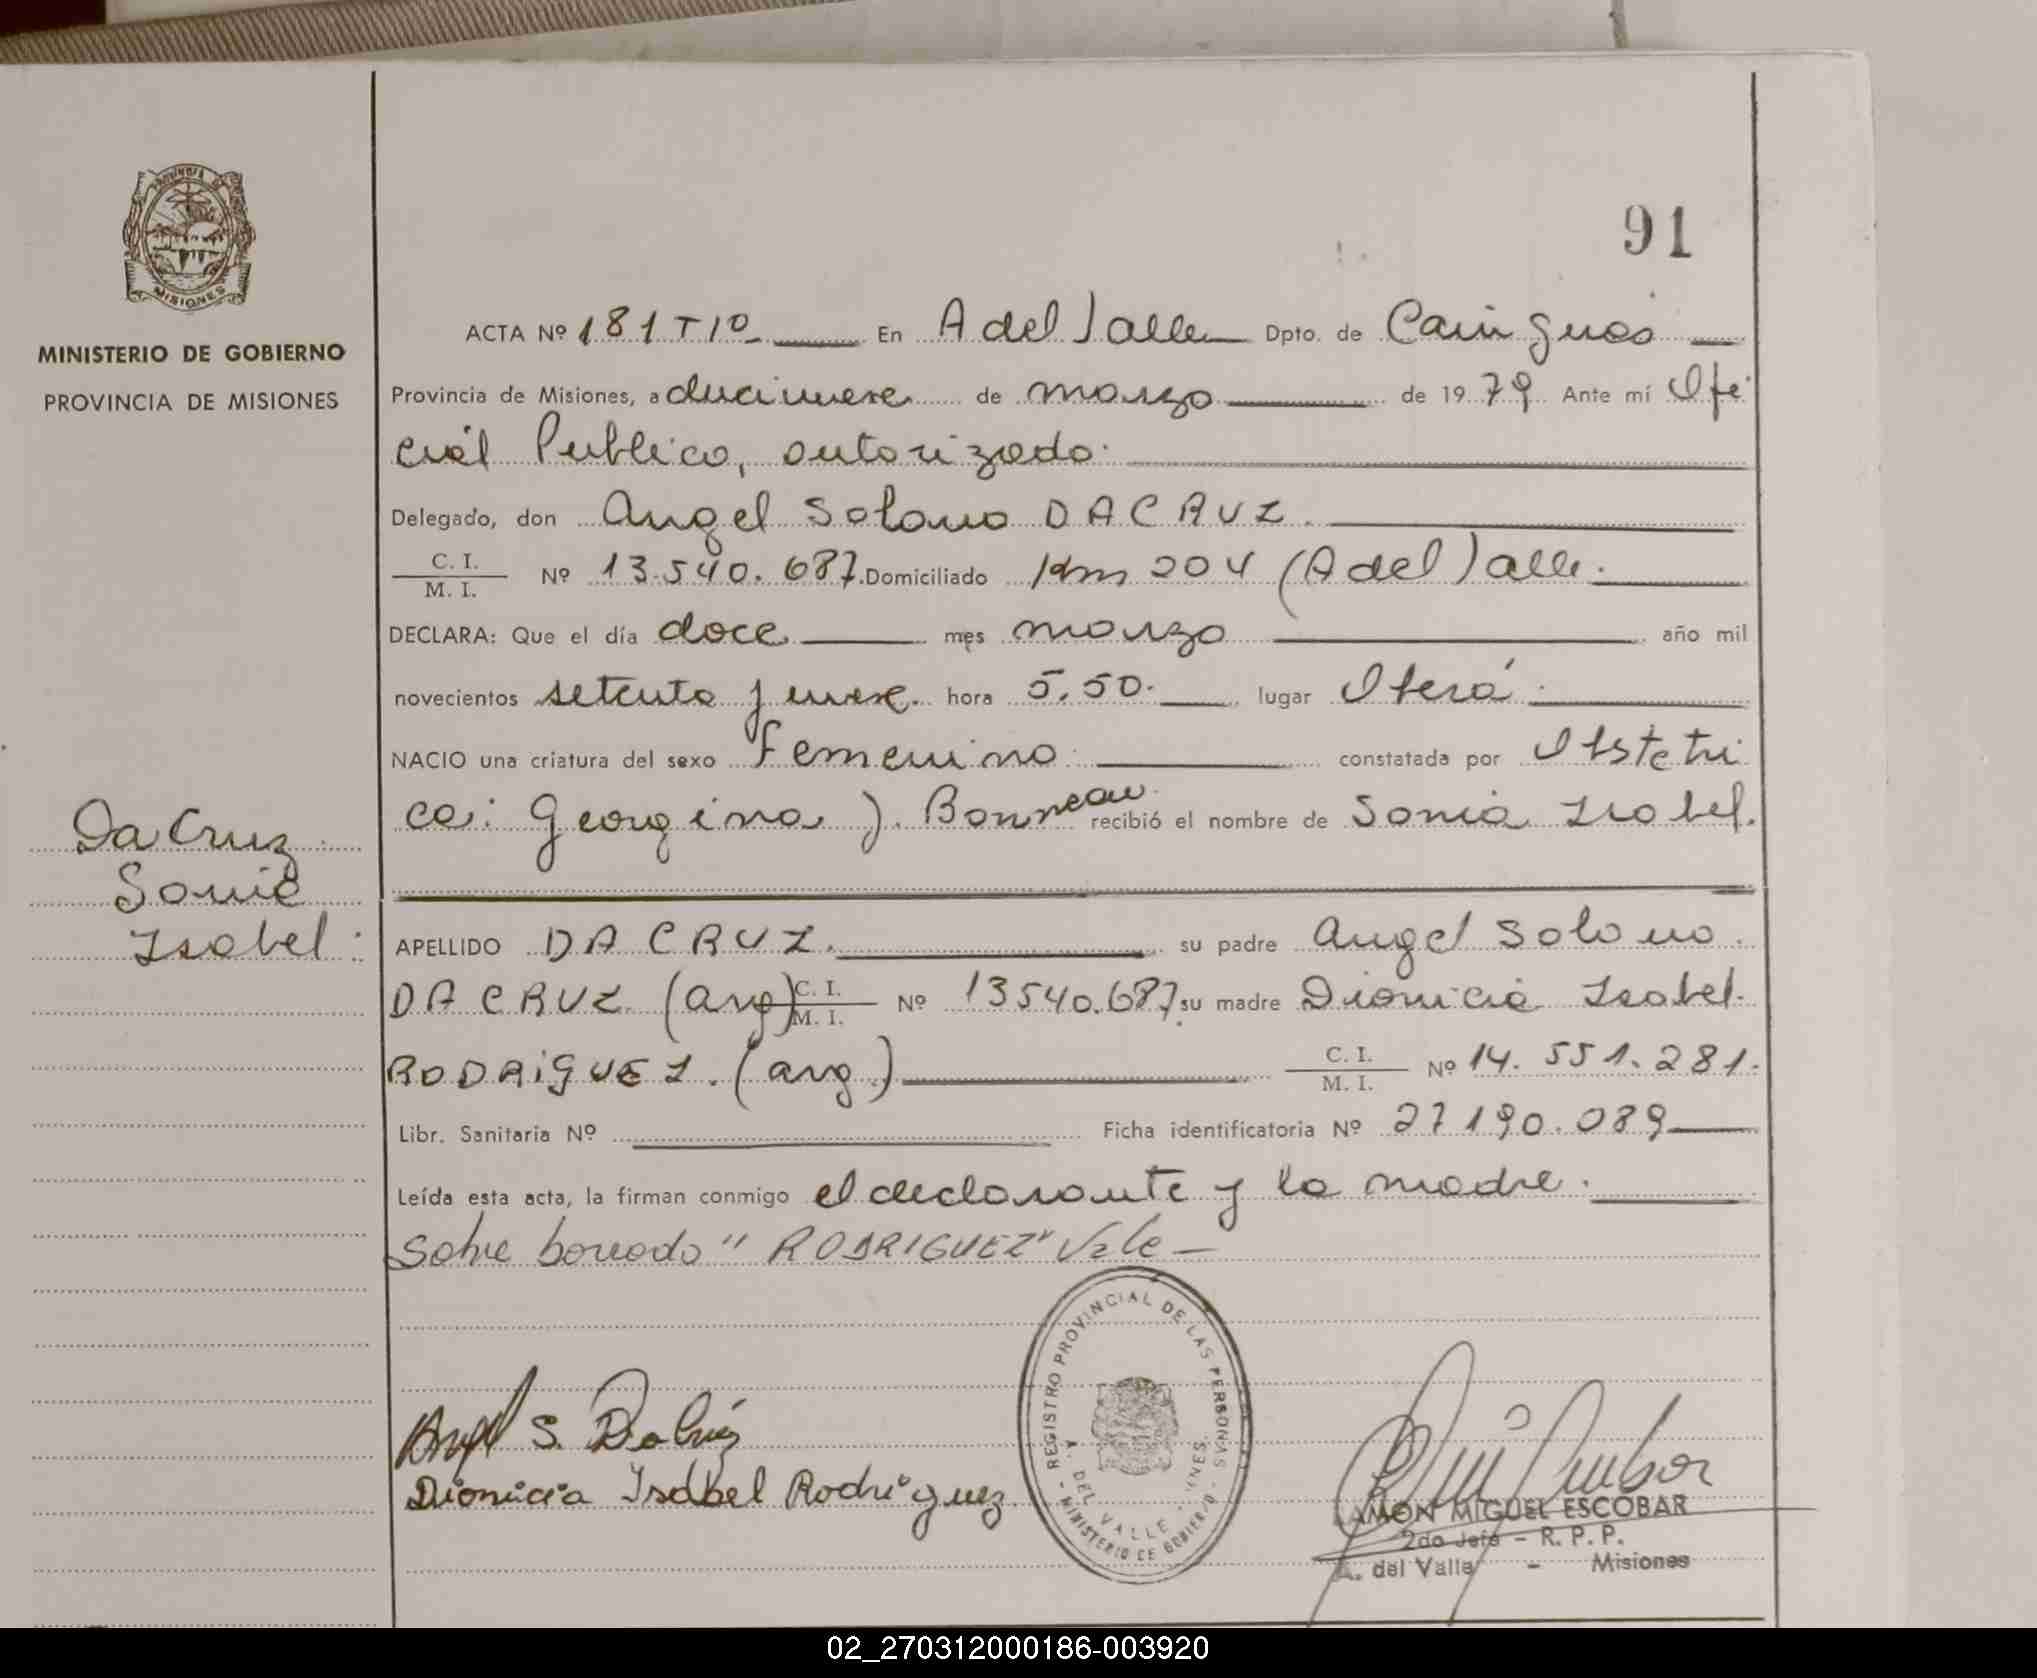 91
MINISTERIO DE GOBIERNO
PROVINCIA DE MISIONES
MISIONES
ACTA Nº 181 T 1º En A del Valle Dpto. de Cainguas
Provincia de Misiones, a diecinueve de marzo de 1979 Ante mí Ofi
cial Publico, autorizado.
Delegado, don Angel Solano DA CRUZ.
C. I.
M. I.
Nº 13.540.687. Domiciliado Km 204 (A del Valle.
DECLARA: Que el día doce mes marzo año mil
novecientos setenta y nueve. hora 5.50. lugar Oberá.
NACIO una criatura del sexo Femenino. constatada por Obstetri
ca: Georgina J. Bonneau. recibió el nombre de Sonia Isabel.
Da Cruz
Sonia
Isabel.
APELLIDO DA CRUZ. su padre Angel Solano.
DA CRUZ (arg) C. I. M. I. Nº 13540.687. su madre Dionicia Isabel.
RODRIGUEZ. (arg.) C. I. M. I. Nº 14.551.281.
Libr. Sanitaria Nº Ficha identificatoria Nº 27190.089
Leída esta acta, la firman conmigo el declarante y la madre.
Sobre borrado "RODRIGUEZ" Vale -
Angel S. DaCruz
Dionicia Isabel Rodriguez
REGISTRO PROVINCIAL DE LAS PERSONAS - MINISTERIO DE GOBIERNO -
A. DEL VALLE
RAMON MIGUEL ESCOBAR
2do Jefe - R. P. P.
A. del Valle - Misiones
02_270312000186-003920